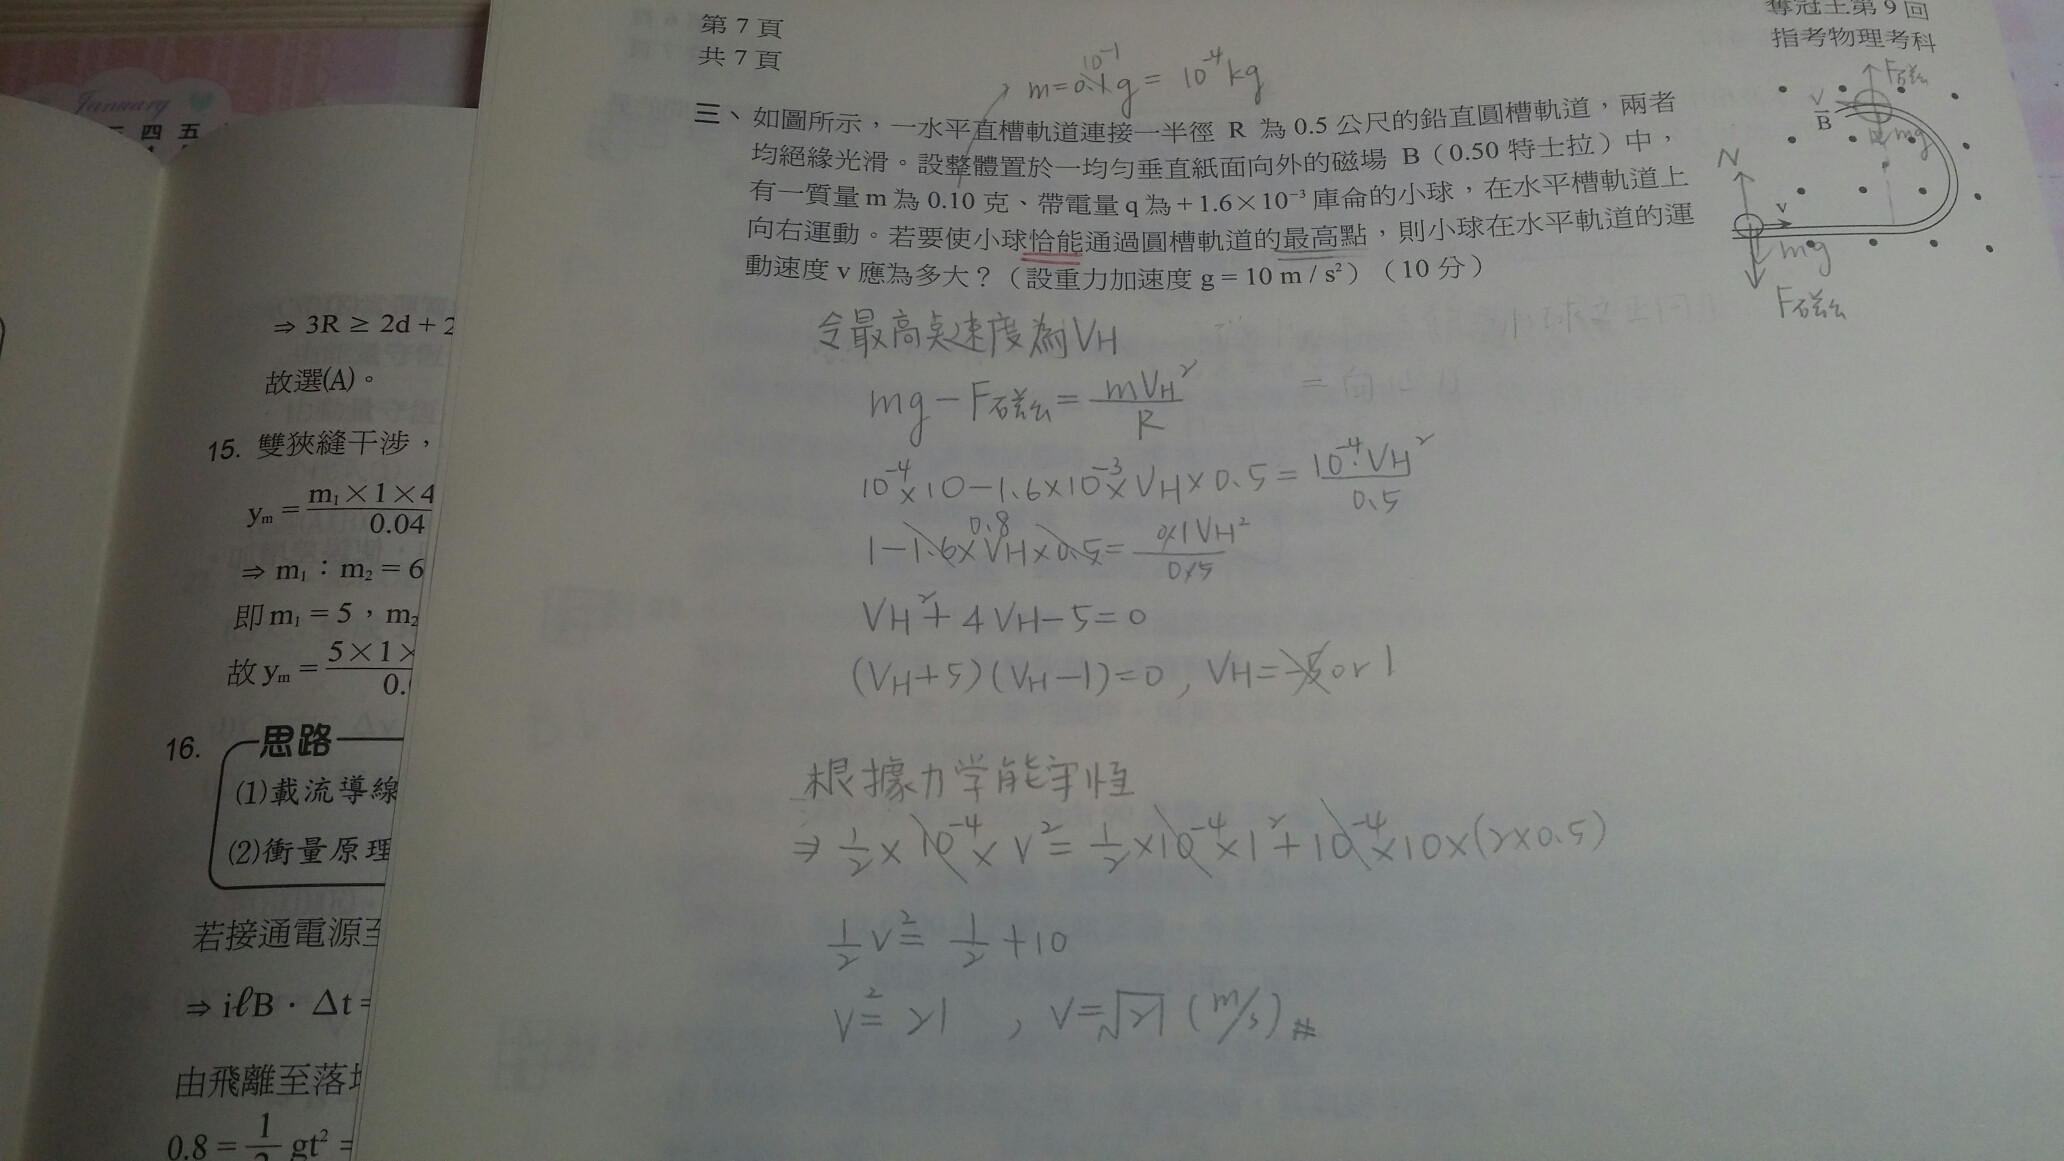 January
三 四 五
⇒ 3R ≥ 2d + 2
故選(A)。
15. 雙狹縫干涉，
yₘ = m₁×1×4 / 0.04
⇒ m₁：m₂ = 6
即 m₁ = 5，m₂
故 yₘ = 5×1× / 0.
16. 思路
(1)載流導線
(2)衝量原理
若接通電源至
⇒ iℓB．Δt =
由飛離至落地
0.8 = 1/2 gt² =
第 7 頁
共 7 頁
奪冠王第 9 回
指考物理考科
m=0.1g = 10⁻⁴kg
10⁻¹
三、如圖所示，一水平直槽軌道連接一半徑 R 為 0.5 公尺的鉛直圓槽軌道，兩者
均絕緣光滑。設整體置於一均勻垂直紙面向外的磁場 B（0.50 特士拉）中，
有一質量 m 為 0.10 克、帶電量 q 為 + 1.6×10⁻³ 庫侖的小球，在水平槽軌道上
向右運動。若要使小球恰能通過圓槽軌道的最高點，則小球在水平軌道的運
動速度 v 應為多大？（設重力加速度 g = 10 m / s²）（10 分）
F磁
V
B
mg
N
v
mg
F磁
令最高點速度為VH
mg－F磁= mVH² / R
10⁻⁴×10－1.6×10⁻³×VH×0.5= 10⁻⁴·VH² / 0.5
0.8
1－1.6×VH×0.5= 0.1VH² / 0.5
VH²+4VH－5=0
(VH+5)(VH－1)=0，VH=-5 or 1
根據力学能守恆
⇒ 1/2×10⁻⁴×V²= 1/2×10⁻⁴×1²+10⁻⁴×10×(2×0.5)
1/2 V²= 1/2 +10
V²= 21 ，V=√21 (m/s)#